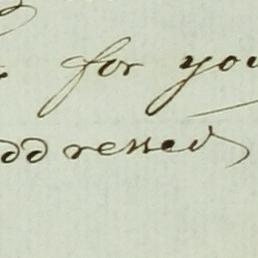 for you
ddressed